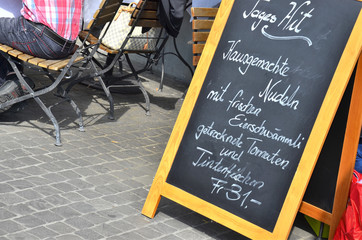 Tages Hit
Hausgemachte
Nudeln
mit frischen
Eierschwämmli
getrocknete Tomaten
und
Tintenfischen
Fr 31.-